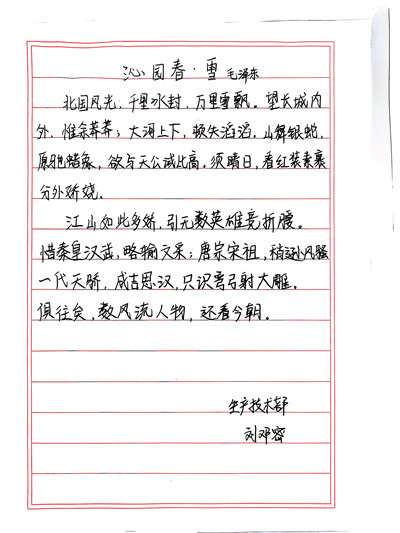 沁园春·雪 毛泽东
北国风光,千里冰封,万里雪飘。望长城内
外,惟余莽莽;大河上下,顿失滔滔。山舞银蛇,
原驰蜡象,欲与天公试比高。须晴日,看红装素裹
分外娇娆。
江山如此多娇,引无数英雄竞折腰。
惜秦皇汉武,略输文采;唐宗宋祖,稍逊风骚
一代天骄,成吉思汗,只识弯弓射大雕。
俱往矣,数风流人物,还看今朝。
生产技术部
刘邓容